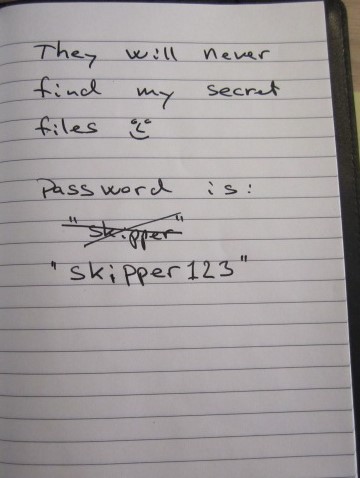 They will never
find my secret
files
Password is:
"skipper"
"skipper123"